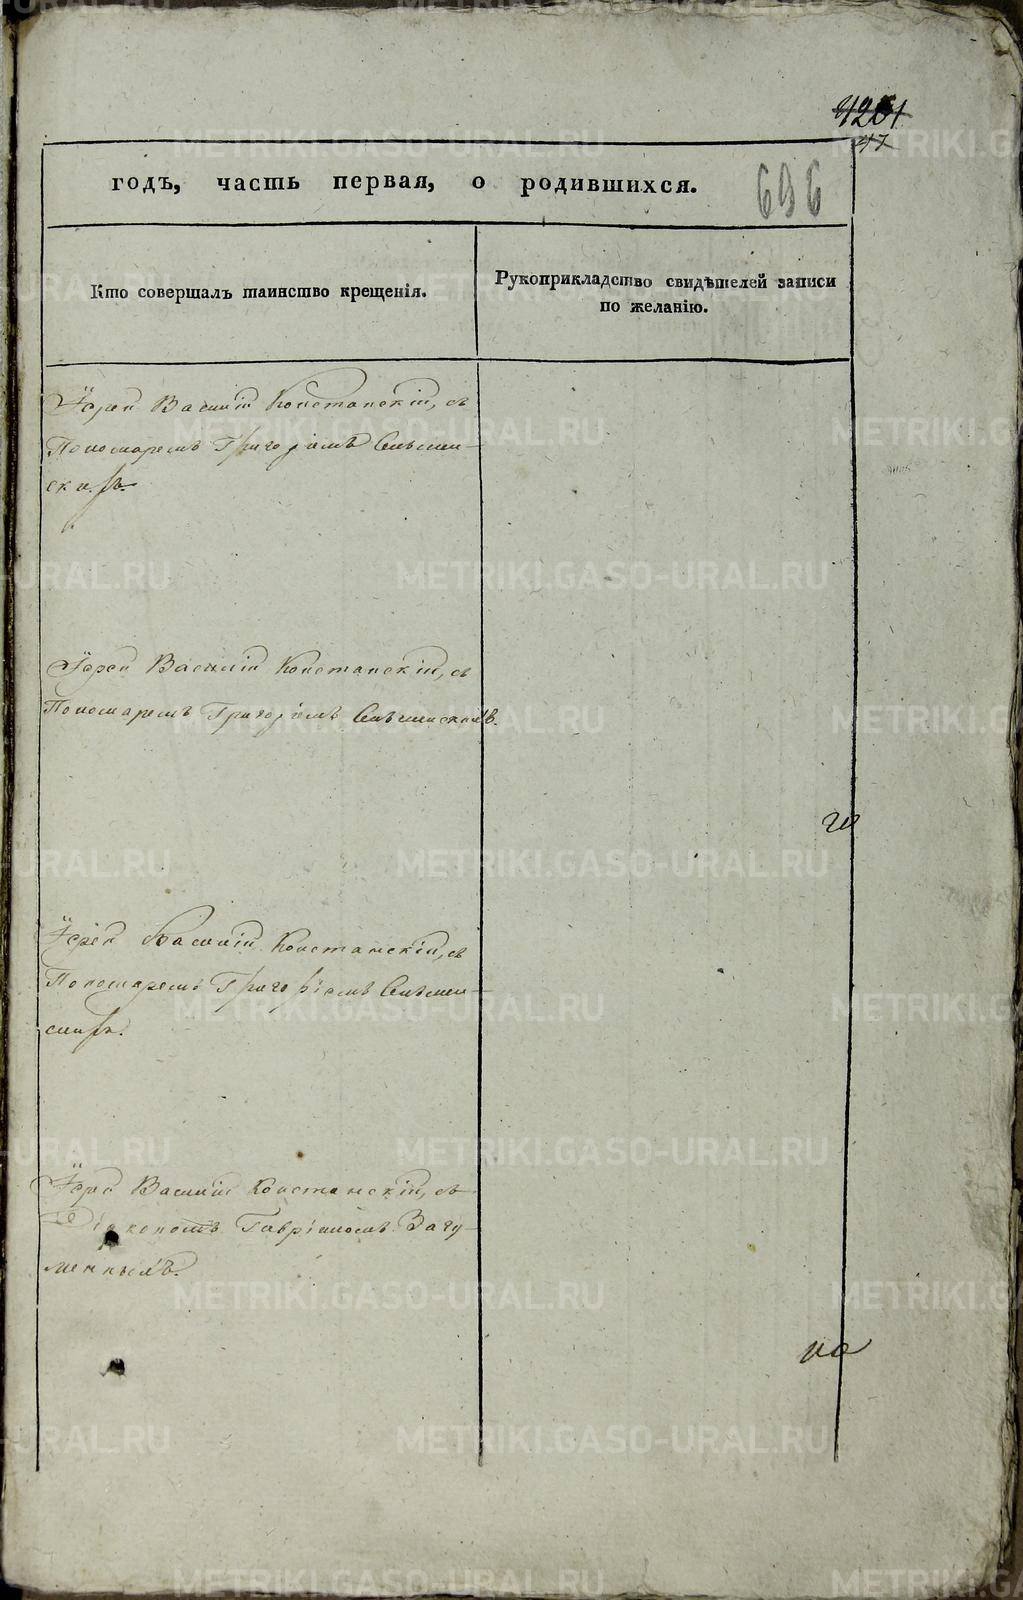 4261
47
годъ, часть первая, о родившихся.
696
Кто совершалъ таинство крещенія.
Рукоприкладство свидѣтелей записи
по желанію.
Іерей Василій Констанскій, съ
Пономаремъ Григоріемъ
Іерей Василій Констанскій, съ
Пономаремъ Григоріемъ
Іерей Василій Констанскій, съ
Пономаремъ Григоріемъ
Іерей Василій Констанскій, съ
Діакономъ Гавріиломъ Загу-
меннымъ.
METRIKI.GASO-URAL.RU